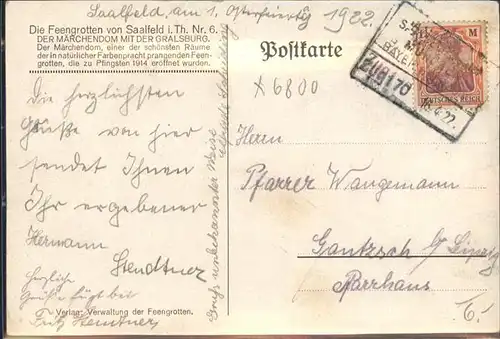 Saalfeld, am 1. Osterfeiertag 1922.
Die Feengrotten von Saalfeld i. Th. Nr. 6.
DER MÄRCHENDOM MIT DER GRALSBURG.
Der Märchendom, einer der schönsten Räume
der in natürlicher Farbenpracht prangenden Feen-
grotten, die zu Pfingsten 1914 eröffnet wurden.
Die herzlichsten
Grüße von hier
sendet Ihnen
Ihr ergebener
Hermann
Stendtner
Herzliche
Grüße fügt bei
Fritz
Verlag: Verwaltung der Feengrotten.
Gruß unbekannter Weise
Postkarte
* 6800
M
DEUTSCHES REICH
ZUG 170
16.4.22.
Herrn
Pfarrer Wangemann
Gautzsch b/ Leipzig
Pfarrhaus